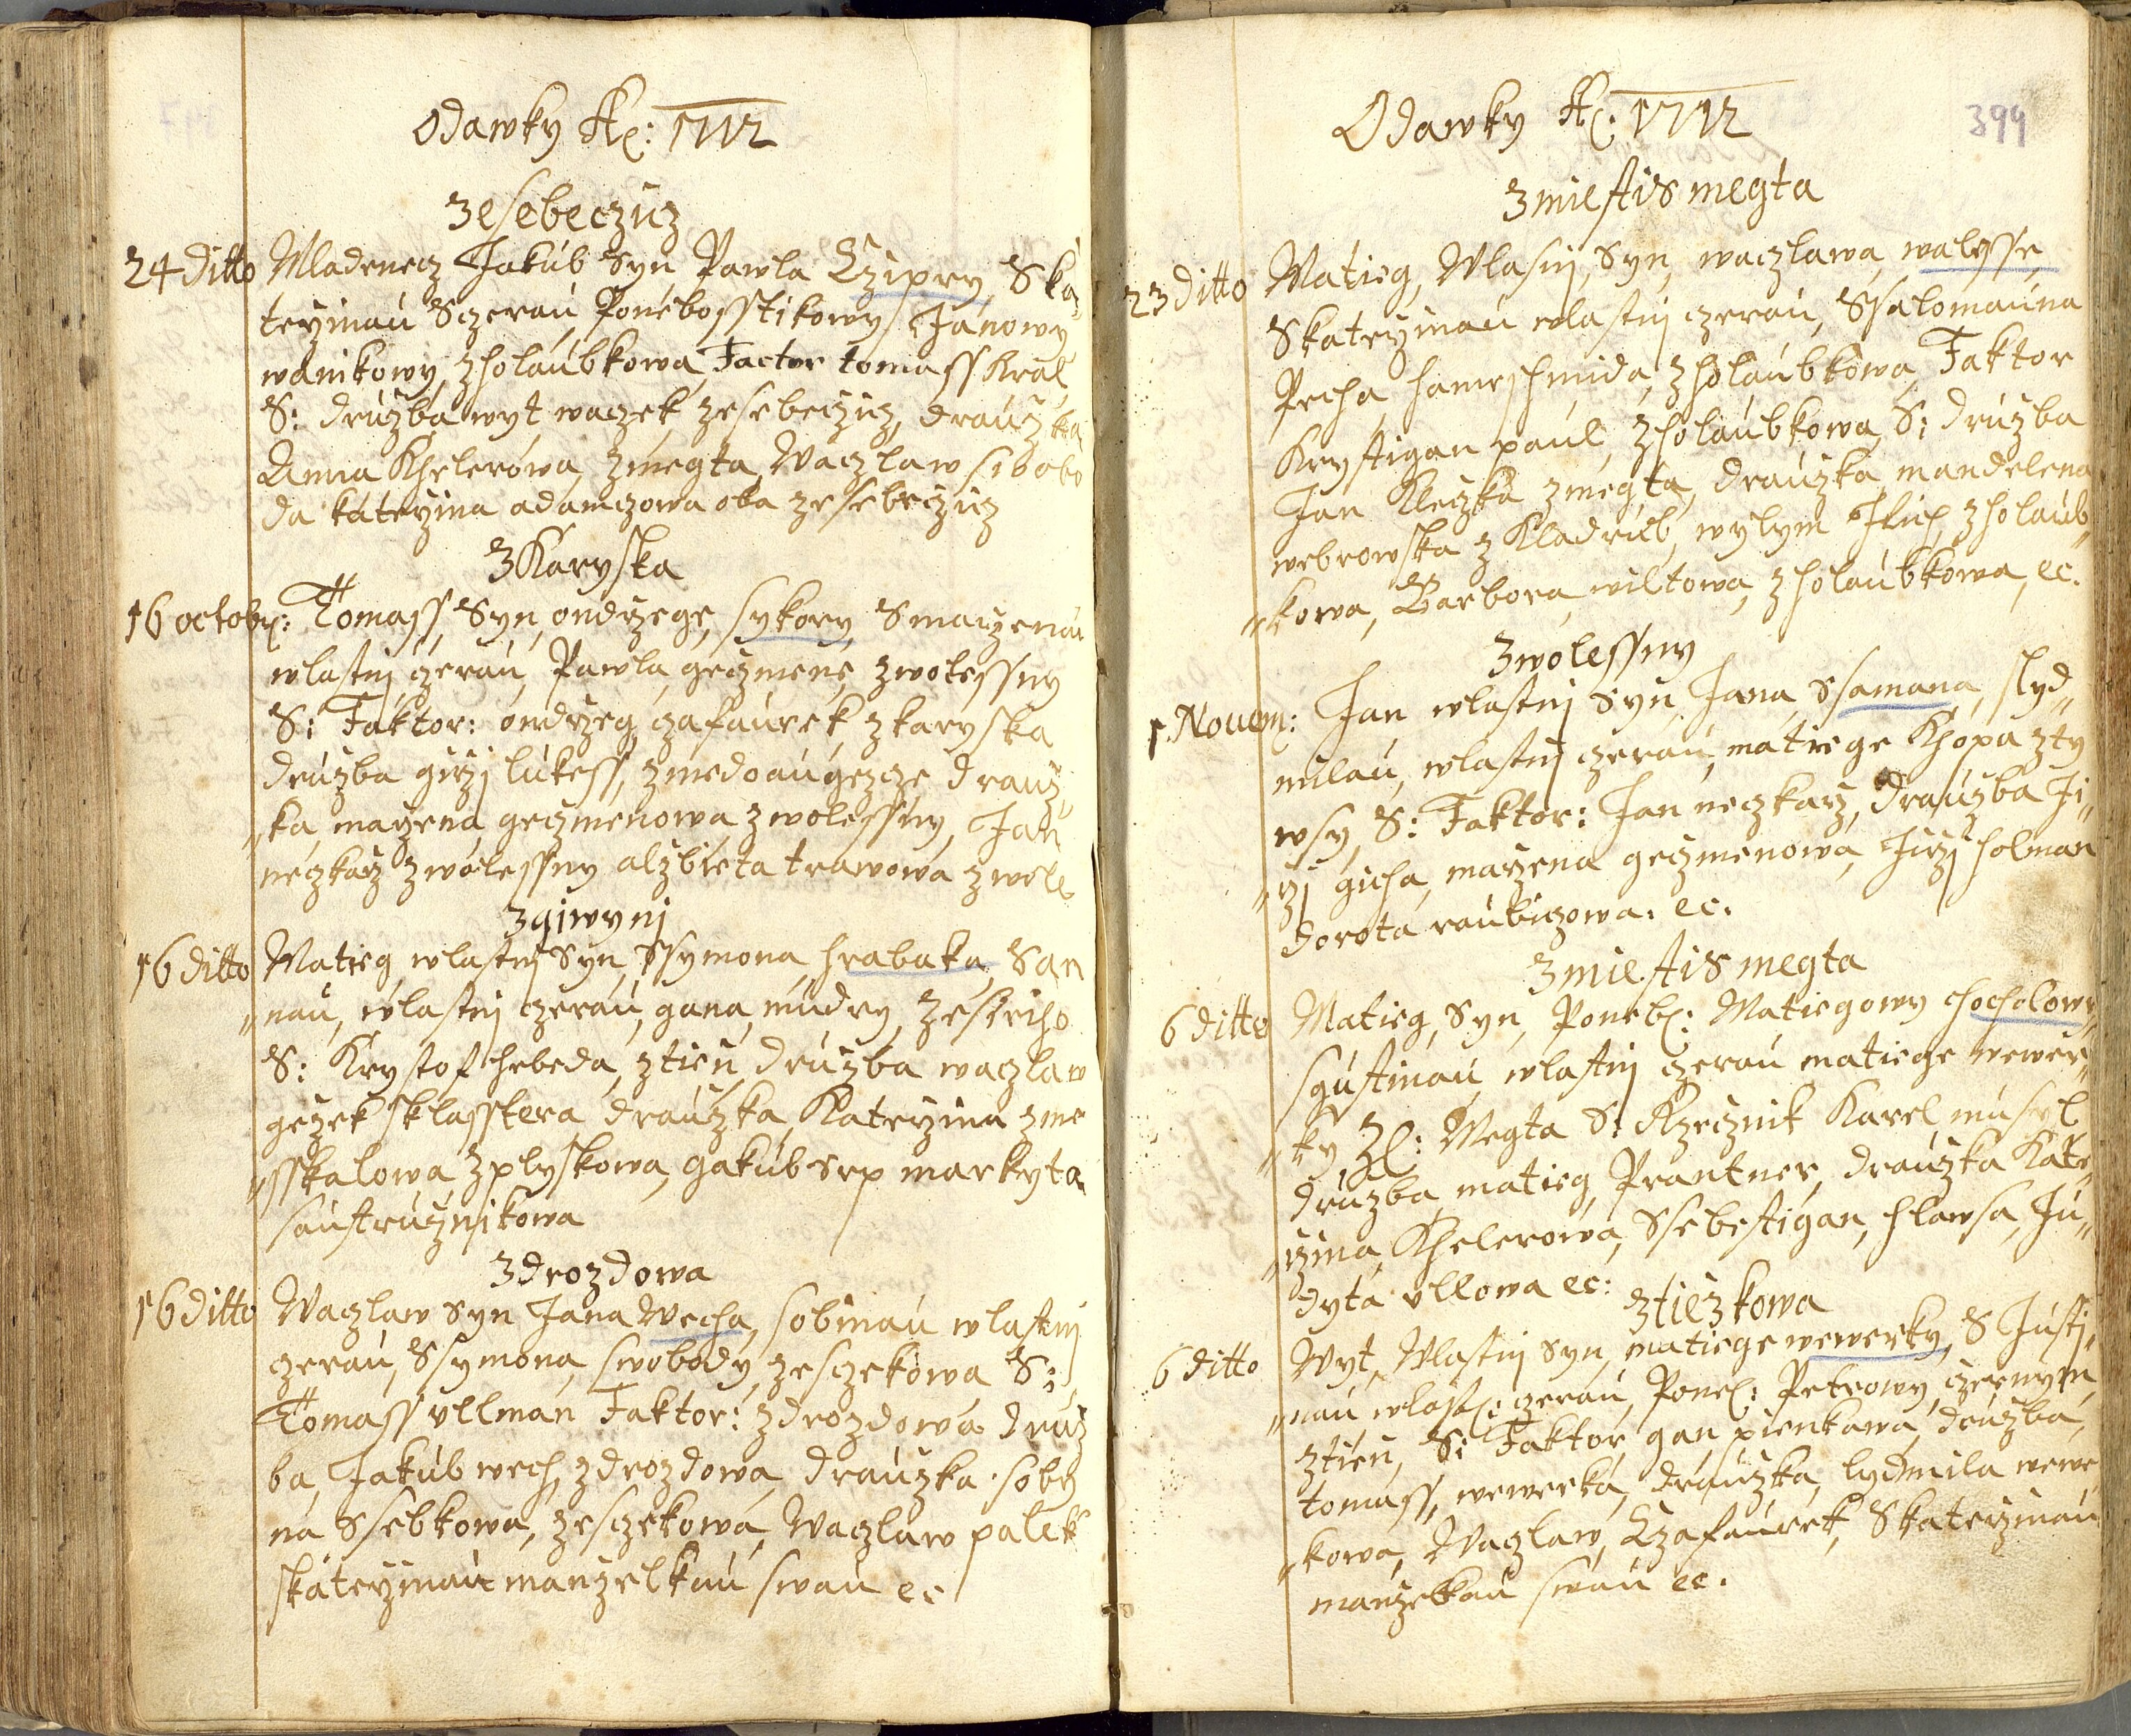 Odawky Ao: 1712
Zesebeczicz
24 ditto Mladenecz Jakub Syn Pawla Czipry, Ska
teyinau Sczerau Ponebosstikowy Janowy
wanikowy, zholaubkowa, Factor tomass Kral
S: druzba wyt waczek zesebeczicz, drauzka
Anna Khelerowa, zmegta, Waczlaw
da kateyina adamczowa oba zesebeczicz
ZKaryska
16 octobr: Tomass, Syn, ondrzege, sykory, Smarzenau
wlastnj czerau, Pawla, geczmene, zwolessny
S: Faktor: ondrzeg czafaurek, zkaryska
druzba girzj lukess, zmedoaugezcze drauz„
„ka marzena geczmenowa zwolessny, Jan
neczkarz zwolessny alzbieta trawowa zwoles
Zgiwynj
16 ditto Matieg wlastnj Syn, Ssymona hrabaka, San
„nau, wlastnj czerau, gana, mudry,
S: Krystof hebeda, ztien druzba waczlaw
gezek sklasstera drauzka, Katerzina zme
„sskalowa, zplyskowa, gakub srp markyta
saustruznikowa
Zdrozdowa
16 ditto Waczlaw Syn Jana Wecha, sobinau wlastnj
czerau, Ssymona, swobody, zesczekowa S:
Tomass ullman Faktor: zdrozdowa druz
ba, Jakub wech, zdrozdowa, drauzka soby
na Ssebkowa, zesczekowa, Waczlaw palek
skateyinau manzelkau swau ec
Odawky Ao: 1712
399
Zmiestis megta
23 ditto Matieg, Wlasnj, Syn, waczlawa, walesse,
Skateyinau wlastnj czerau, Ssalomauna
Pecha, hamrschmida, zholaubkowa Faktor
Krystigan paul, zholaubkowa, S: druzba
Jan Kleczka zmegta, drauzka, mandelena
webrowska z Kladrub, wylym zholaub„
„kowa, Barbora, wiltowa, zholaubkowa, ec.
Zwolessny
1. Nouem: Jan wlastnj Syn, Jana, Ssamana, slyd„
milau, wlastnj czerau, matiege Khopa zty
wsy, S: Faktor: Jan neczkarz, drauzba Ji„
„rzj gicha, marzena geczmenowa, Jirzj holman
dorota raubiczowa. ec.
Zmiestis megta
6 ditto Matieg, Syn, Poneb: Matiegowy chocholowy
sgustinau, wlastnj czerau matiege wewer„
„ky, Zl: Megta S: Rzecznik Karel musyl
druzba, matieg, Prantner, drauzka Kate„
„rzina, Khelerowa, Ssebestigan, hlawsa, Ju„
dyta ullowa ec:
ztiezkowa
6 ditto Wyt, Wlastnj Syn, matiege wewerky, S Justj„
„nau wlast: czerau, Poneb: Petrowy, czernym
ztien, S: Faktor, gan pienkawa, druzba,
tomass, wewerka, drauzka, lydmila wewe
„kowa, Waczlaw, Czafaurek, Skateyinau
manzelkau swau ec.